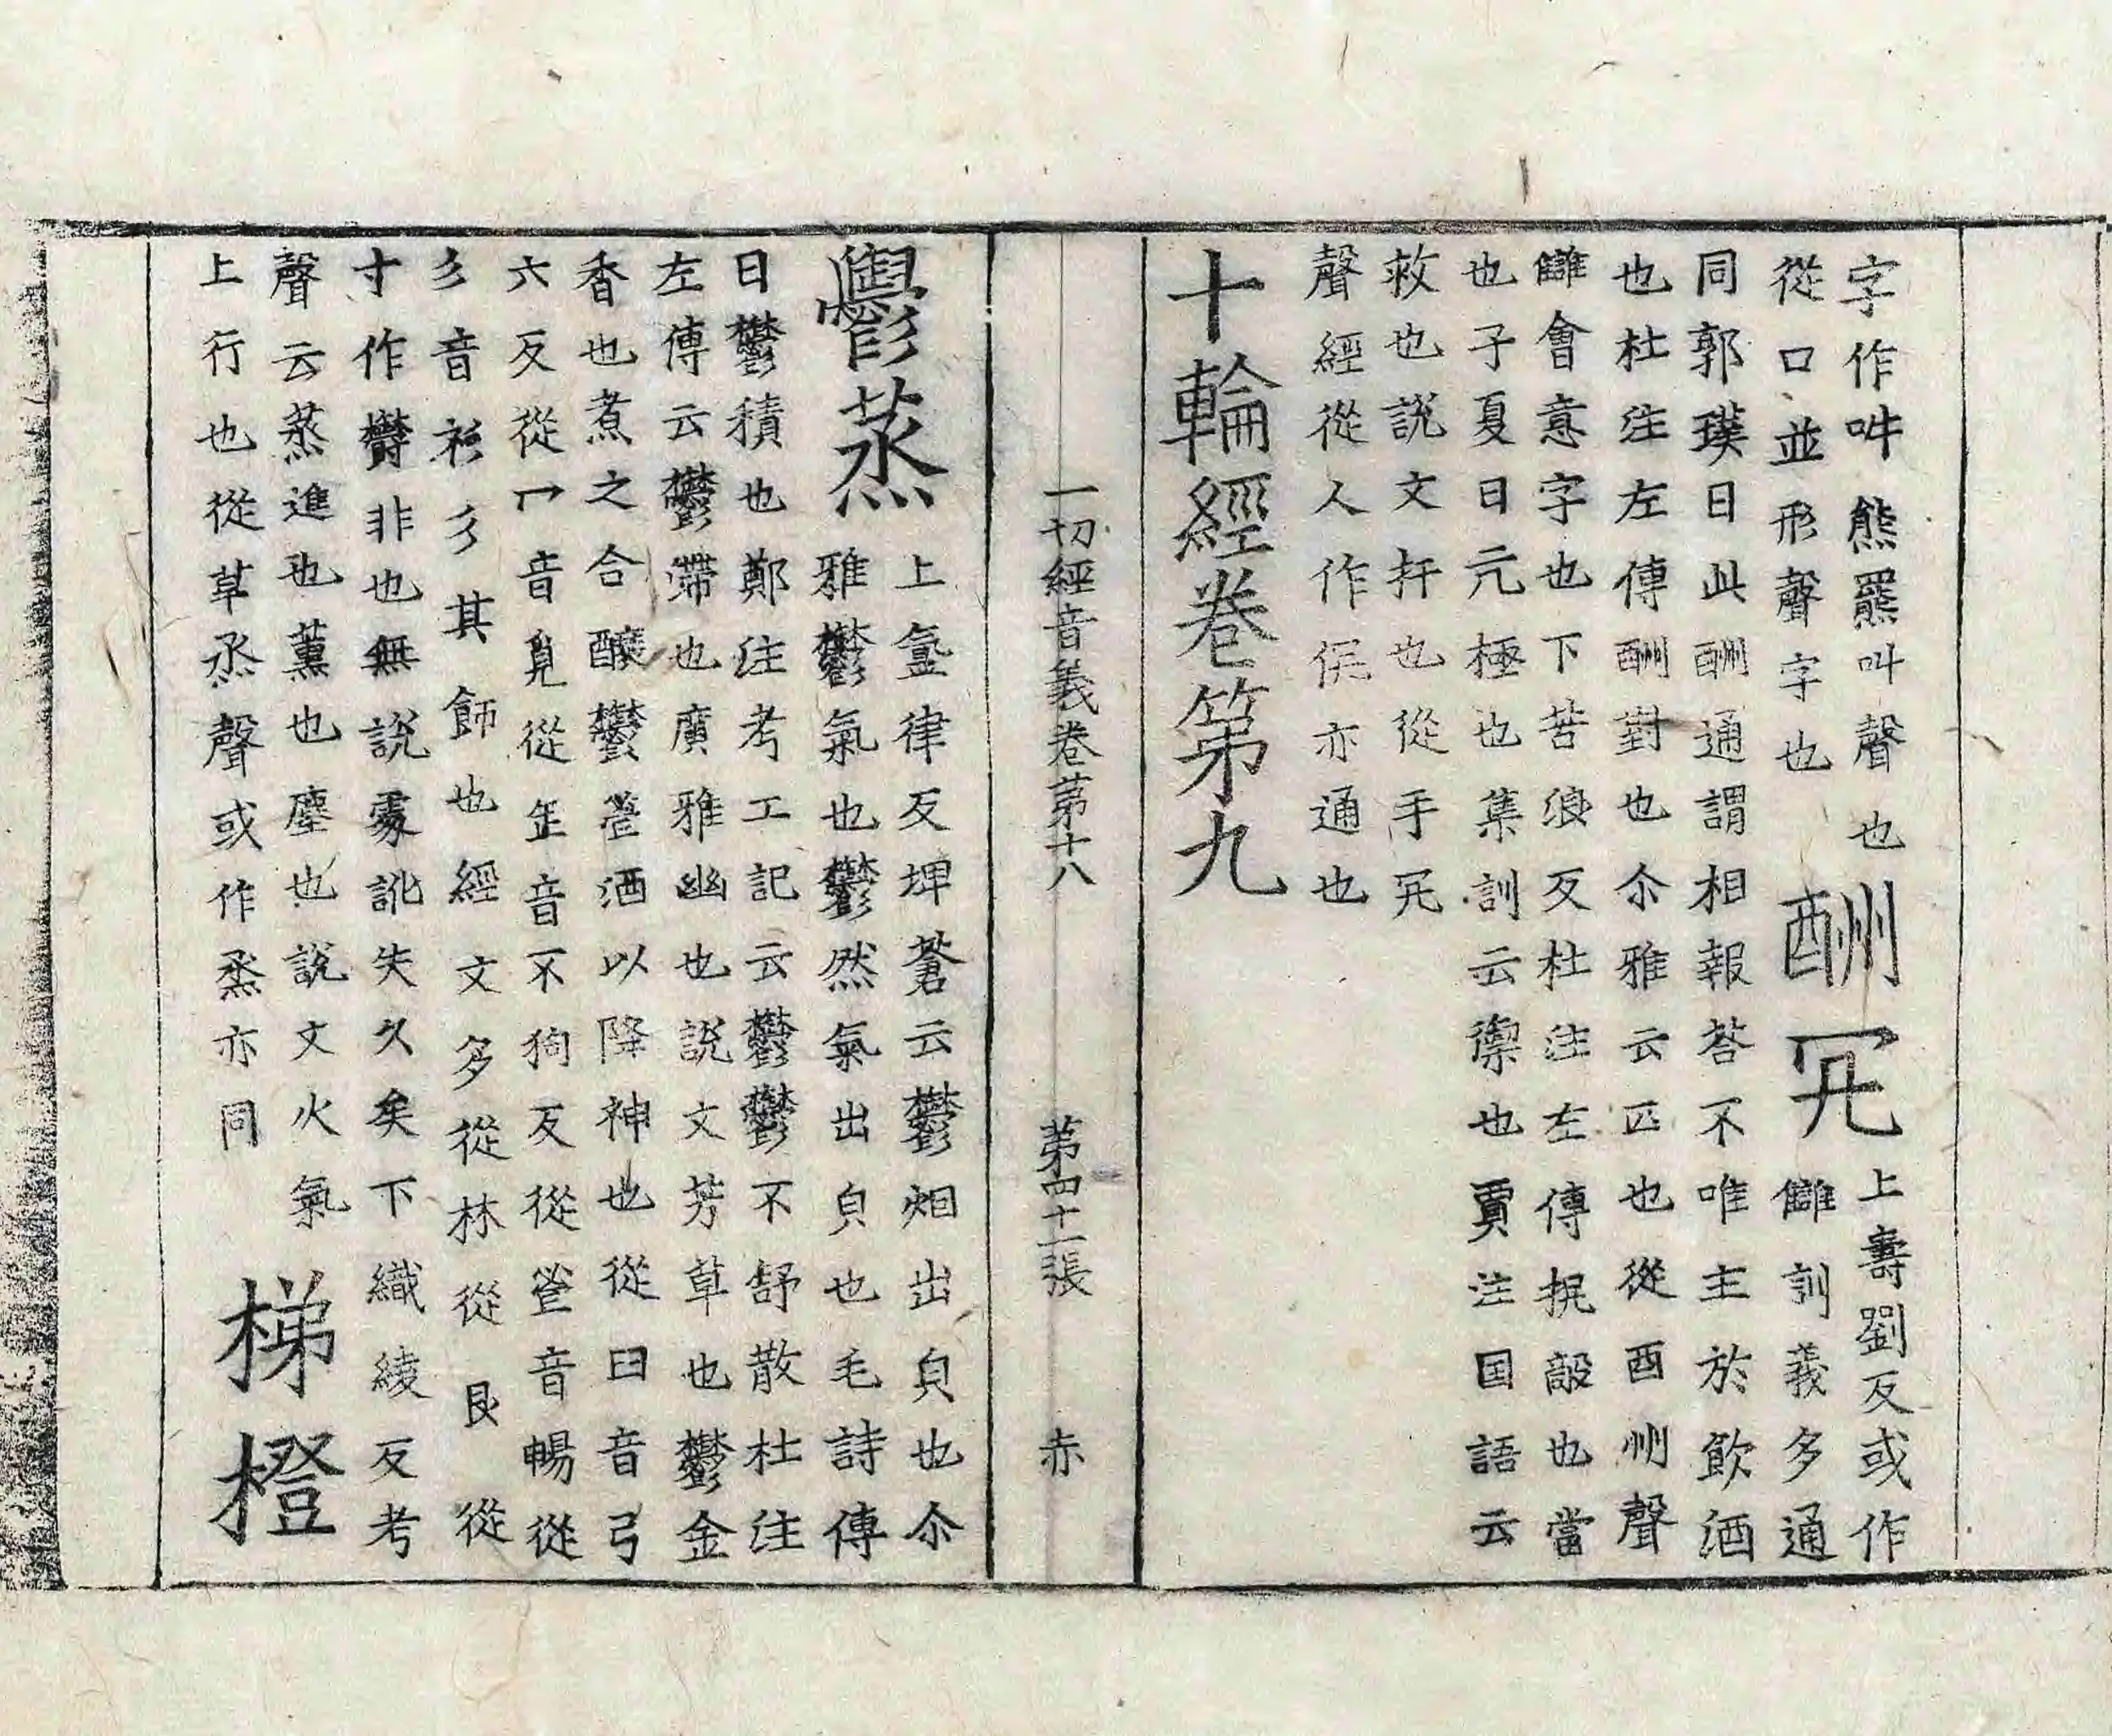 字作吽熊羆叫聲也酬𡨚上壽劉反或作
從口並形聲字也　讎訓義多通
同郭璞曰此酬通謂相報荅不唯主於飲酒
也杜注左傳酬對也尒雅云匹也從酉州聲
讎會意字也下苦浪反杜注左傳抏也當
也子夏曰亢極也集訓云禦也賈注国語云
救也說文扞也從手冗
聲經從人作伉亦通也
十輪經卷第九
一切經音義卷第十八　第四十二張　赤
鬱蒸上氳律反埤蒼云鬱烟出皃也尒
雅鬱氣也鬱然氣出皃也毛詩傳
曰鬱積也鄭注考工記云鬱鬱不舒散杜注
左傳云鬱滯也廣雅幽也說文芳草也鬱金
香也煮之合釀鬱鬯酒以降神也從臼音弓
六反從冖音覓從缶音不狗反從鬯音暢從
彡音衫彡其飾也經文多從林從艮從
寸作欝非也無說處訛失久矣下織綾反考
聲云蒸進也薰也塵也說文火氣梯橙
上行也從草烝聲或作烝亦同